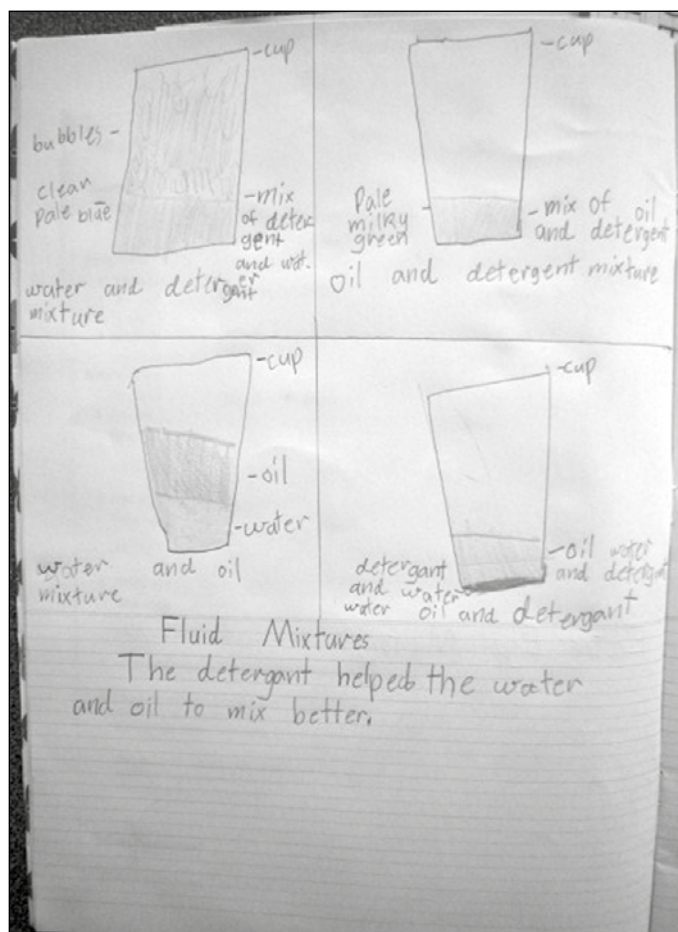 -cup
bubbles -
clean
pale blue
-mix
of deter
gent
and wat.
er
water and detergant
mixture
-cup
Pale
milky
green
-mix of oil
and detergent
oil and detergent mixture
-cup
-oil
-water
water and oil
mixture
-cup
-oil water
and detergent
detergant
and water
water oil and detergant
Fluid Mixtures
The detergant helped the water
and oil to mix better.